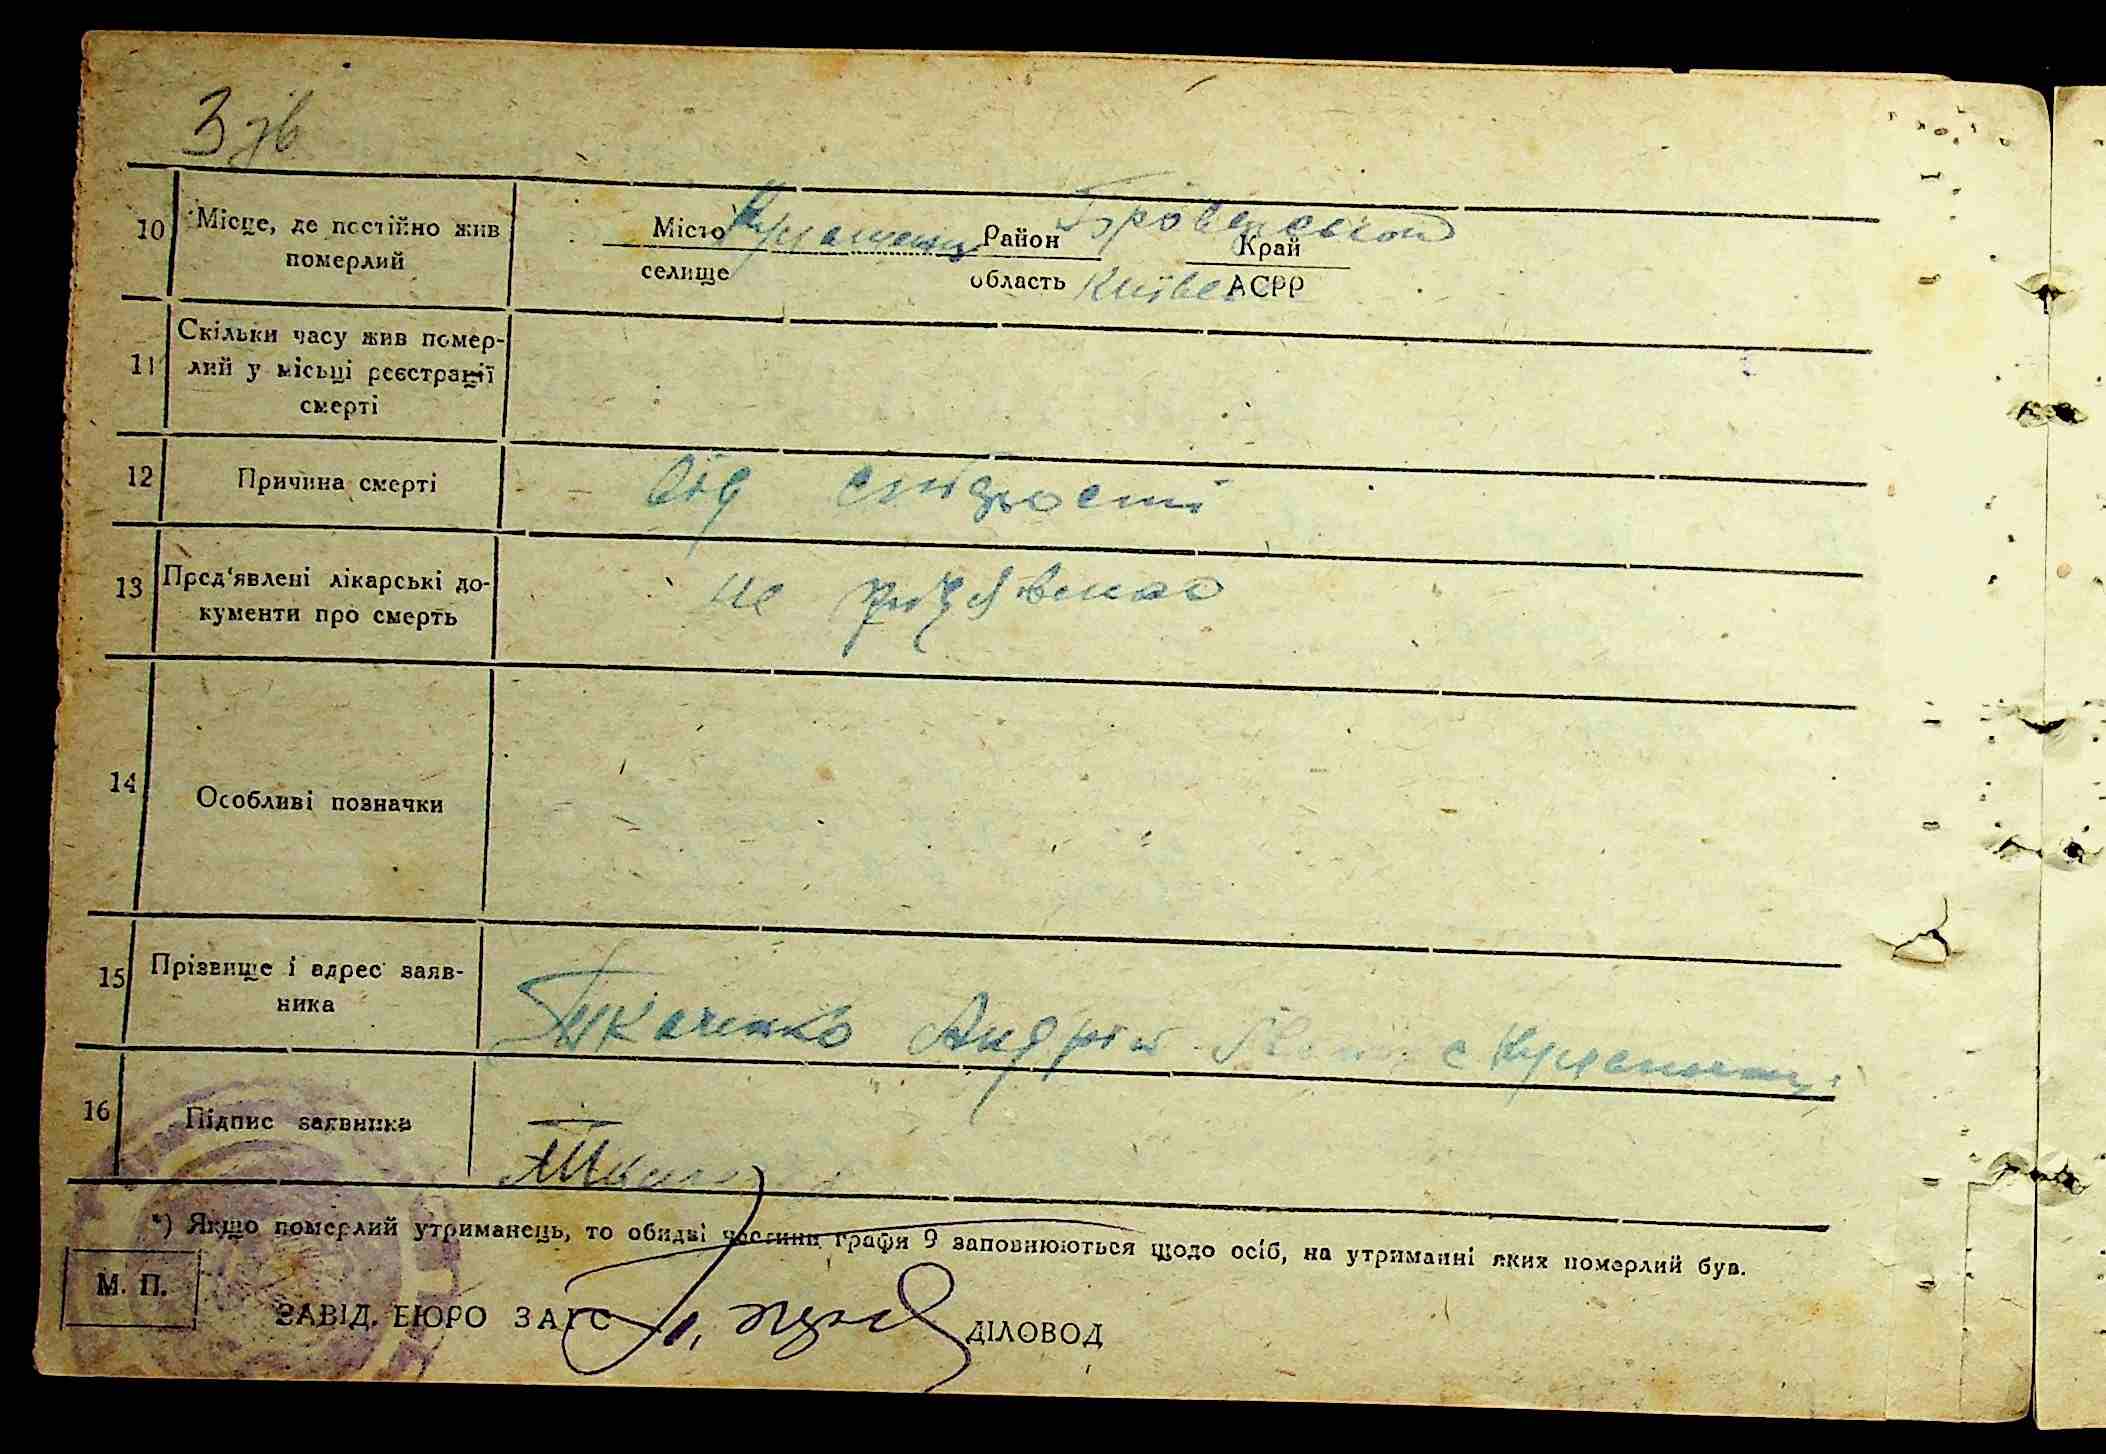 3 зв
10 Місце, де постійно жив Місто Район Бровенський Край
померлий селище область Київська АСРР
Скільки часу жив помер-
11 лий у місьці реєстрації
смерті
12 Причина смерті від старости
13 Пред'явлені лікарські до- не
кументи про смерть
14 Особливі позначки
15 Прізвище і адрес заяв-
ника Ткаченко Андрій с
16 Підпис заявника
*) Якщо померлий утриманець, то обидві частини графи 9 заповнюються щодо осіб, на утриманні яких померлий був.
М. П.
ЗАВІД. БЮРО ЗАГС ДІЛОВОД